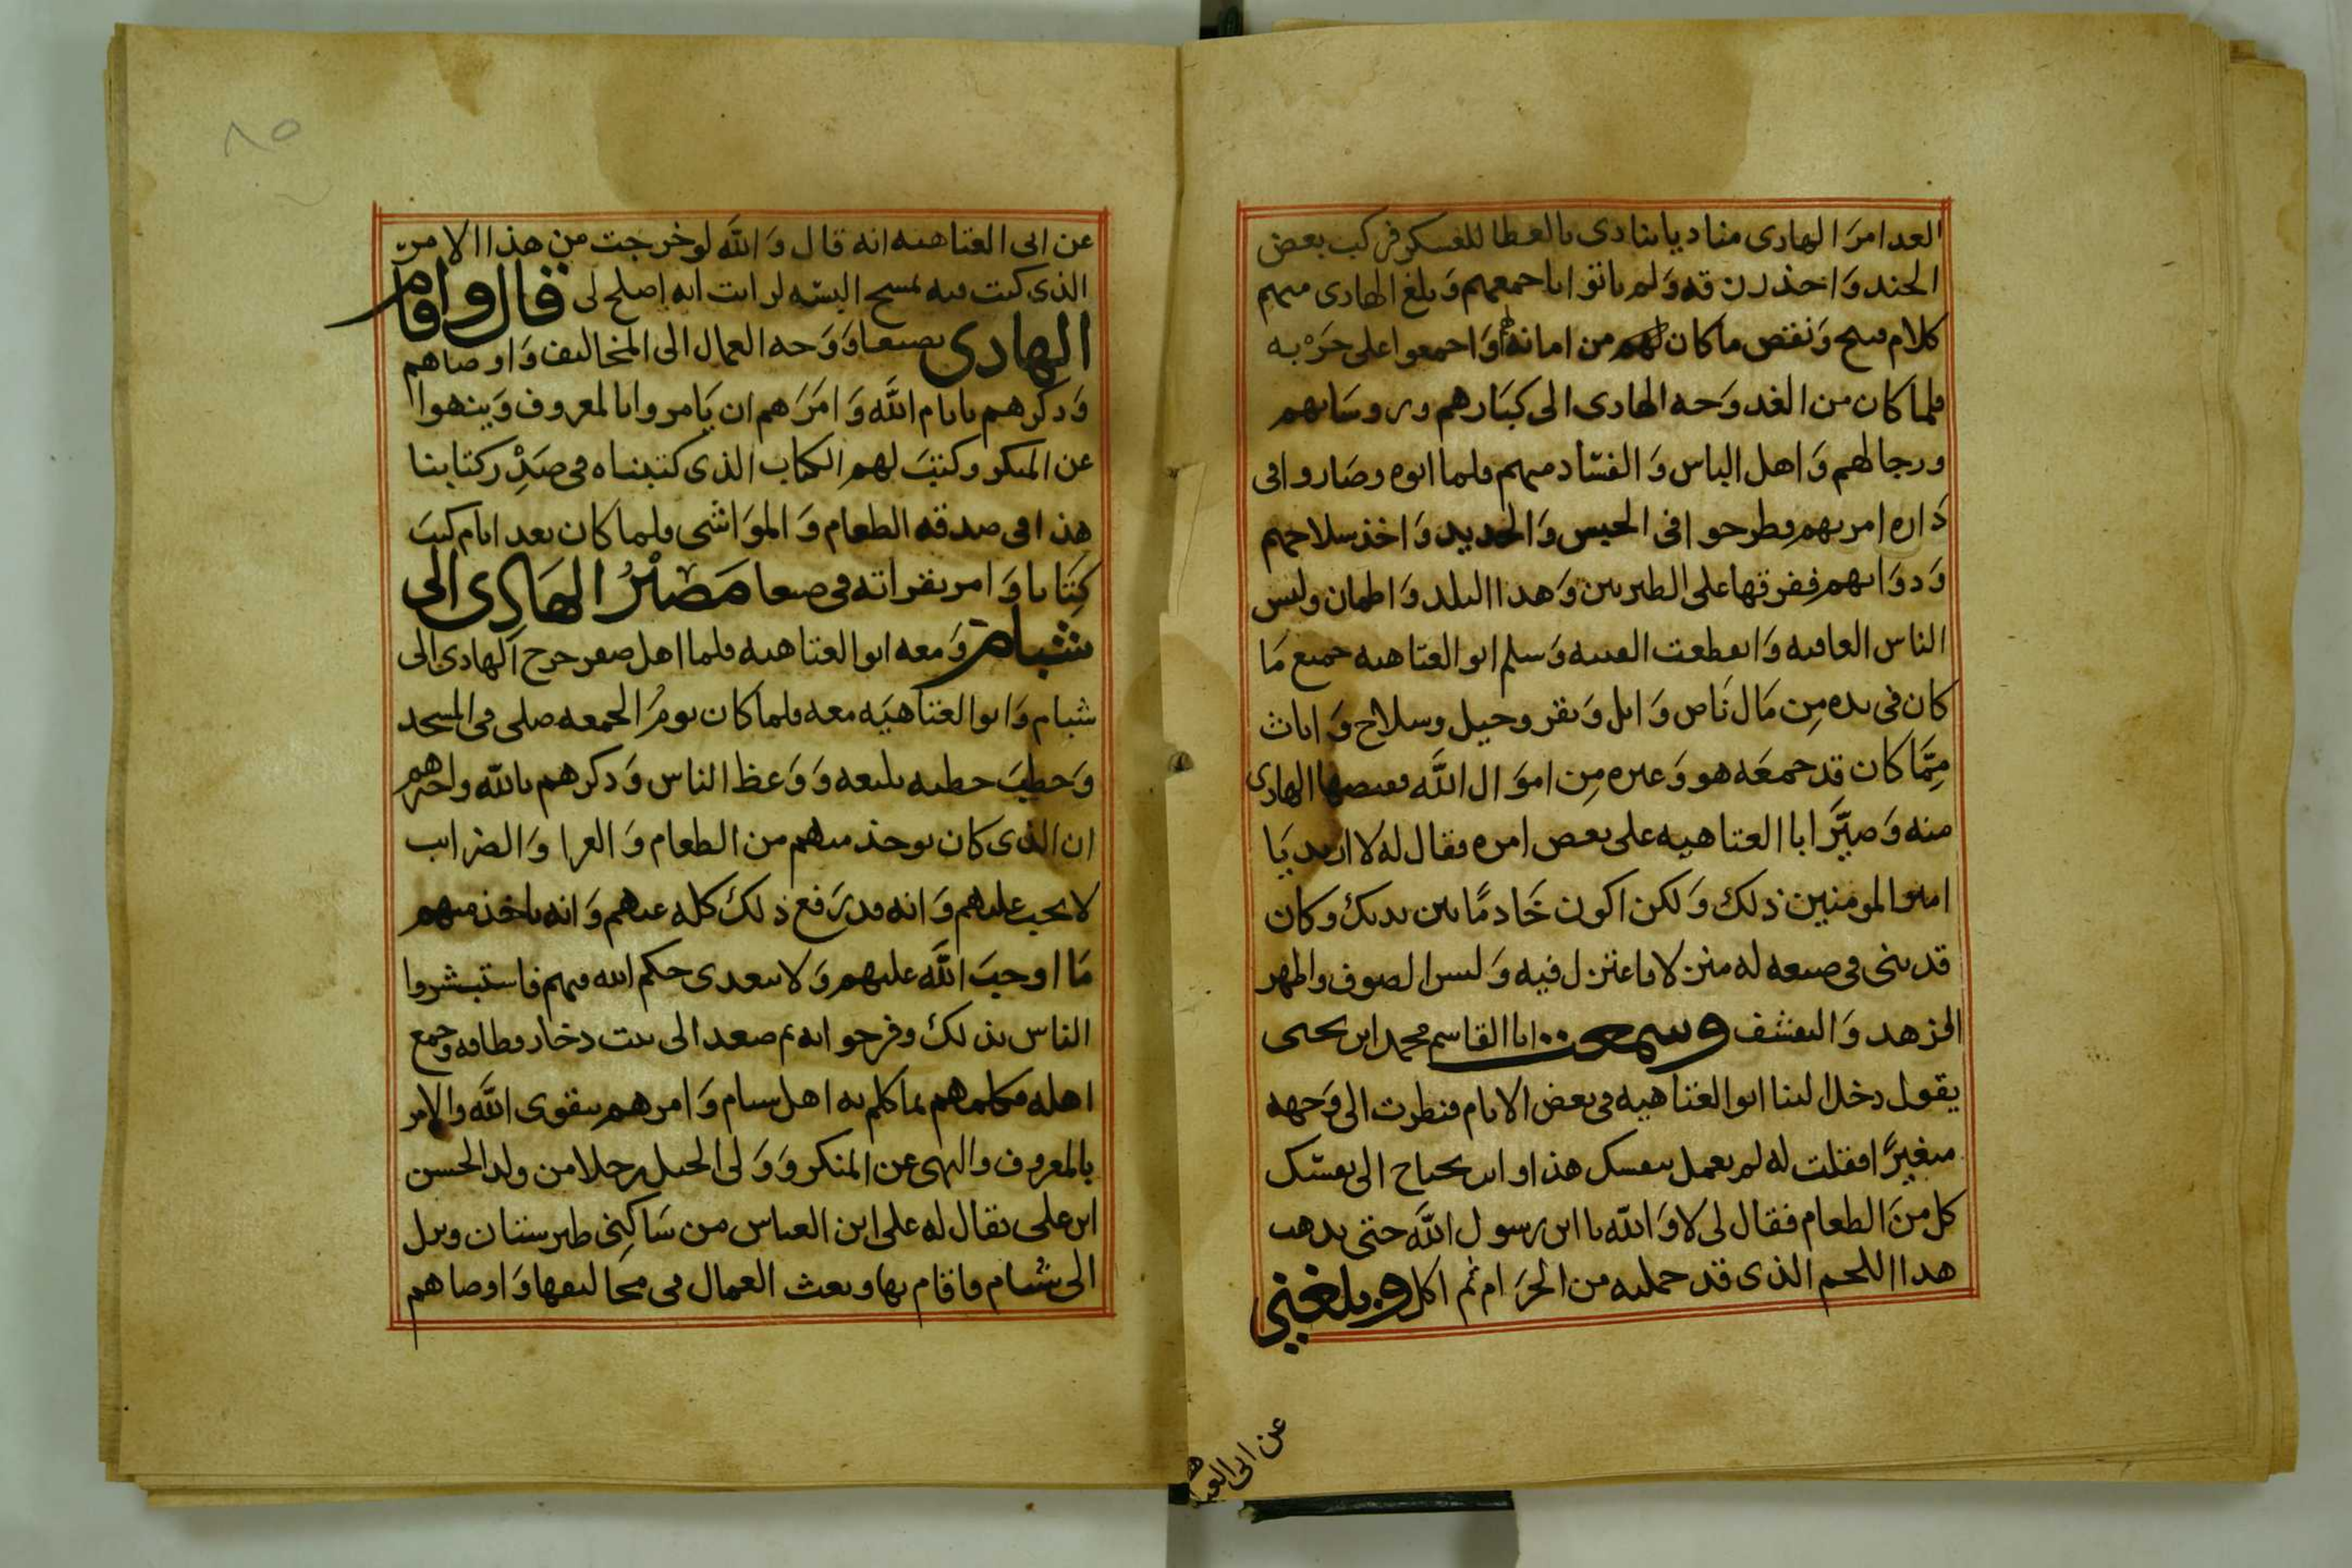 الغد امرَ الهادى مناديا ينادى بالعطا للعسكر فركب بعض
الجند وَاخذ رزقه وَلم ياتوا باجمعهم وَبلغ الهادى منهم
كلام قبيح وَنقص ما كان لهم من امانة وَاجمعوا على حَرْبه
فلما كان من الغد وَجه الهادى الى كبَارهم وروسَائهم
ورجالهم وَاهل الباس وَالفسَاد منهم فلما اتوه وصَاروا فى
دَاره امر بهم فطرحوا فى الحبس وَالحديد وَاخذ سلاحهم
وَدوَابهم ففرقها على الطبريين وَهدا البلد وَاطمان ولبس
الناس العافيه وَانقطعت الفتنه وَسلم ابو العتاهيه جميع مَا
كان فى يده مِن مَال نَاض وَابل وَبقر وخيل وسلاح وَاثاث
مِمَّا كان قد جمعَه هو وَغيره مِن اموَال اللَّه فقبضها الهادى
منه وَصيَّرَ ابا العتاهيه على بعض امره فقال له لا اريد يَا
امير المومنين ذلك وَلكن اكون خَادمًا بين يديك وكان
قد بنى فى ضيعه له منزلا فاعتزل فيه وَلبس الصوف واظهر
الزهد وَالتقشف وسمعت ابا القاسم محمد ابن يحيى
يقول دخل الينا ابو العتاهيه فى بعض الايام فنظرت الى وَجهه
متغيرًا فقلت له لم تعمل بنفسك هذا وانت تحتاج الى نفسك
كل منَ الطعام فقال لى لا وَاللّه يا ابن رسول اللَّه حتى يذهب
هذا اللحم الذى قد حملته من الحرَام ثم اكل وبلغني
عن ابى العتاهيه
٨٥
عن ابى العتاهيه انه قال وَاللَّه لو خرجت من هذا الامر
الذى كنت فيه بمسح البسه لرايت انه اصلح لى قال واقام
الهادى بصنعا وَوَجه العمال الى المخاليف وَاوصاهم
وَذكرهم بايام اللَّه وَامَرَهم ان يَامروا بالمعروف وَينهوا
عن المنكر وكتبَ لهم الكتاب الذى كتبناه فى صَدْرِ كتابنا
هذا فى صدقه الطعام وَالموَاشى فلما كان بعد ايام كتبَ
كِتَابا وَامر بقراته فى صنعا مَصِيْرُ الهَادى الى
شبام وَمعه ابو العتاهيه فلما اهل صفر خرج الهادى الى
شبام وَابو العتاهيَه معه فلما كان يومُ الجمعه صلى فى المسجد
وَخطبَ خطبه بليغه وَوَعظ الناس وَذكرهم باللّه واخبرهم
ان الذى كان يوخذ منهم من الطعام وَالعرا وَالضرايب
لا يجب عليهم وَانه قد رَفع ذلك كله عنهم وَانه ياخذ منهم
مَا اوجبَ اللَّه عليهم وَلا يتعدى حكم الله فيهم فاستبشروا
الناس بذلك وفرحوا به ثم صعد الى بيت ذخار فطافه وجمع
اهله فكلمهم بما كلم به اهل شبام وَامرهم بتقوى اللَّه والامر
بالمعروف والنهى عن المنكر وَوَلى الجبل رجلا من ولد الحسن
ابن على يقال له على ابن العباس من سَاكِنى طبرستان ونزل
الى شبام فاقام بها وبعث العمال فى مخاليفها وَاوصاهم